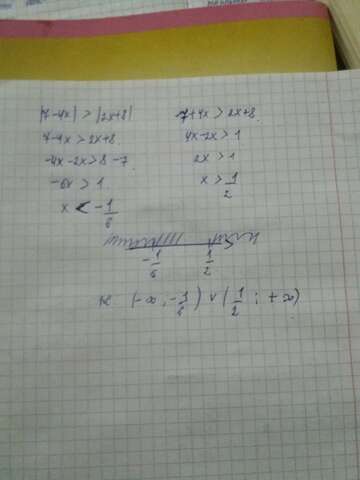 |7-4x| > |2x+8|
7-4x > 2x+8
-4x-2x > 8-7
-6x > 1
x < -1/6
7+4x > 2x+8
4x-2x > 1
2x > 1
x > 1/2
-1/6 1/2
(-∞; -1/6) ∨ (1/2; +∞)